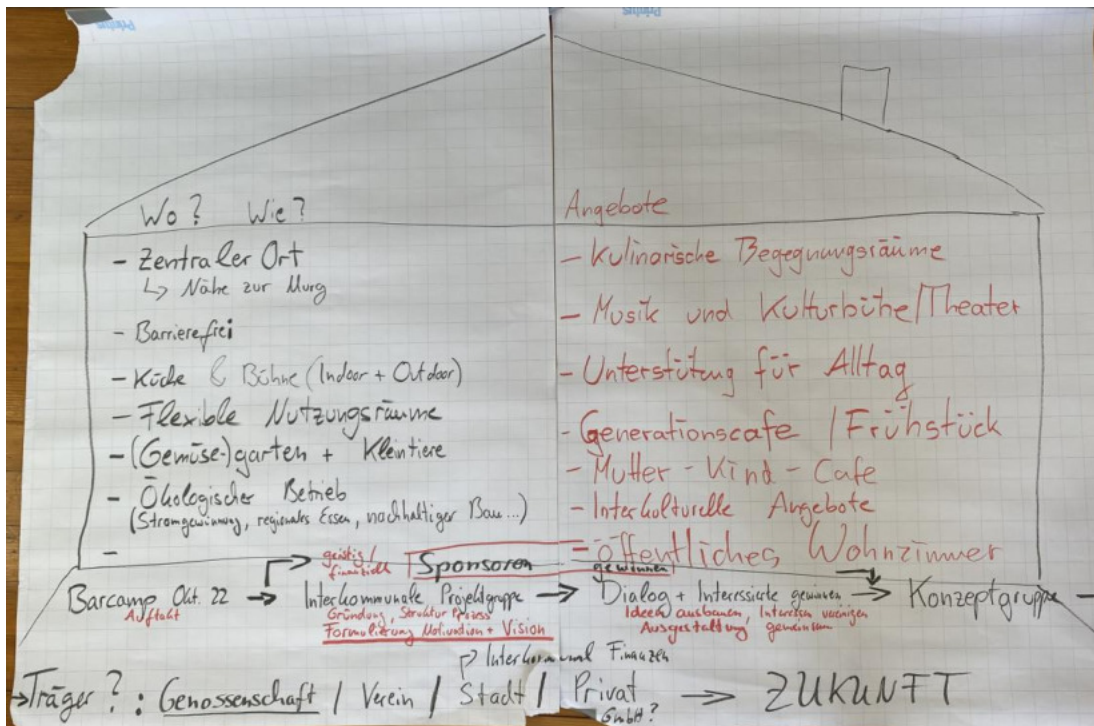 Printus
Printus
Wo? Wie?
- Zentraler Ort
↳ Nähe zur Murg
- Barrierefrei
- Küche & Bühne (Indoor + Outdoor)
- Flexible Nutzungsräume
- (Gemüse-)garten + Kleintiere
- Ökologischer Betrieb
(Stromgewinnung, regionales Essen, nachhaltiger Bau...)
-
Angebote
- Kulinarische Begegnungsräume
- Musik und Kulturbühe/Theater
- Unterstützung für Alltag
- Generationscafe / Frühstück
- Mutter-Kind-Cafe
- Interkulturelle Angebote
- öffentliches Wohnzimmer
geistig/
finanziell
Sponsoren gewinnen
Barcamp Okt. 22 → Interkommunale Projektgruppe → Dialog + Interessierte gewinnen → Konzeptgruppe →
Auftakt
Gründung, Struktur Prozess
Formulierung Motivation + Vision
Ideen ausbauen, Interessen vereinigen
Ausgestaltung, gemeinsam
Interkommunal Finanzen
→ Träger?: Genossenschaft / Verein / Stadt / Privat → ZUKUNFT
GmbH?